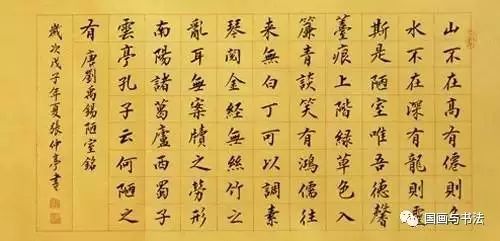 山不在高有僊則名
水不在深有龍則靈
斯是陋室唯吾德馨
薹痕上階綠草色入
簾青談笑有鴻儒往
来無白丁可以調素
琴閱金經無絲竹之
亂耳無案牘之勞形
南陽諸葛廬西蜀子
雲亭孔子云何陋之
有 唐劉禹錫陋室銘
歲次戊子年夏張仲亭書
国画与书法